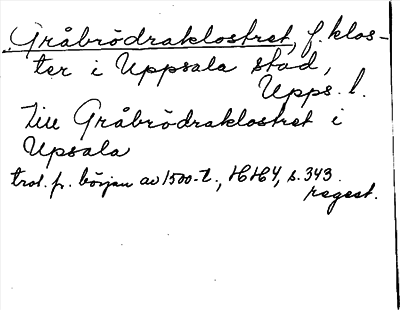 Gråbrödraklostret, f. klos-
ter i Uppsala stad,
Upps. l.
Till Gråbrödraklostret i
Upsala
trol. fr. början av 1500-t., HH4, s. 343.
regest.